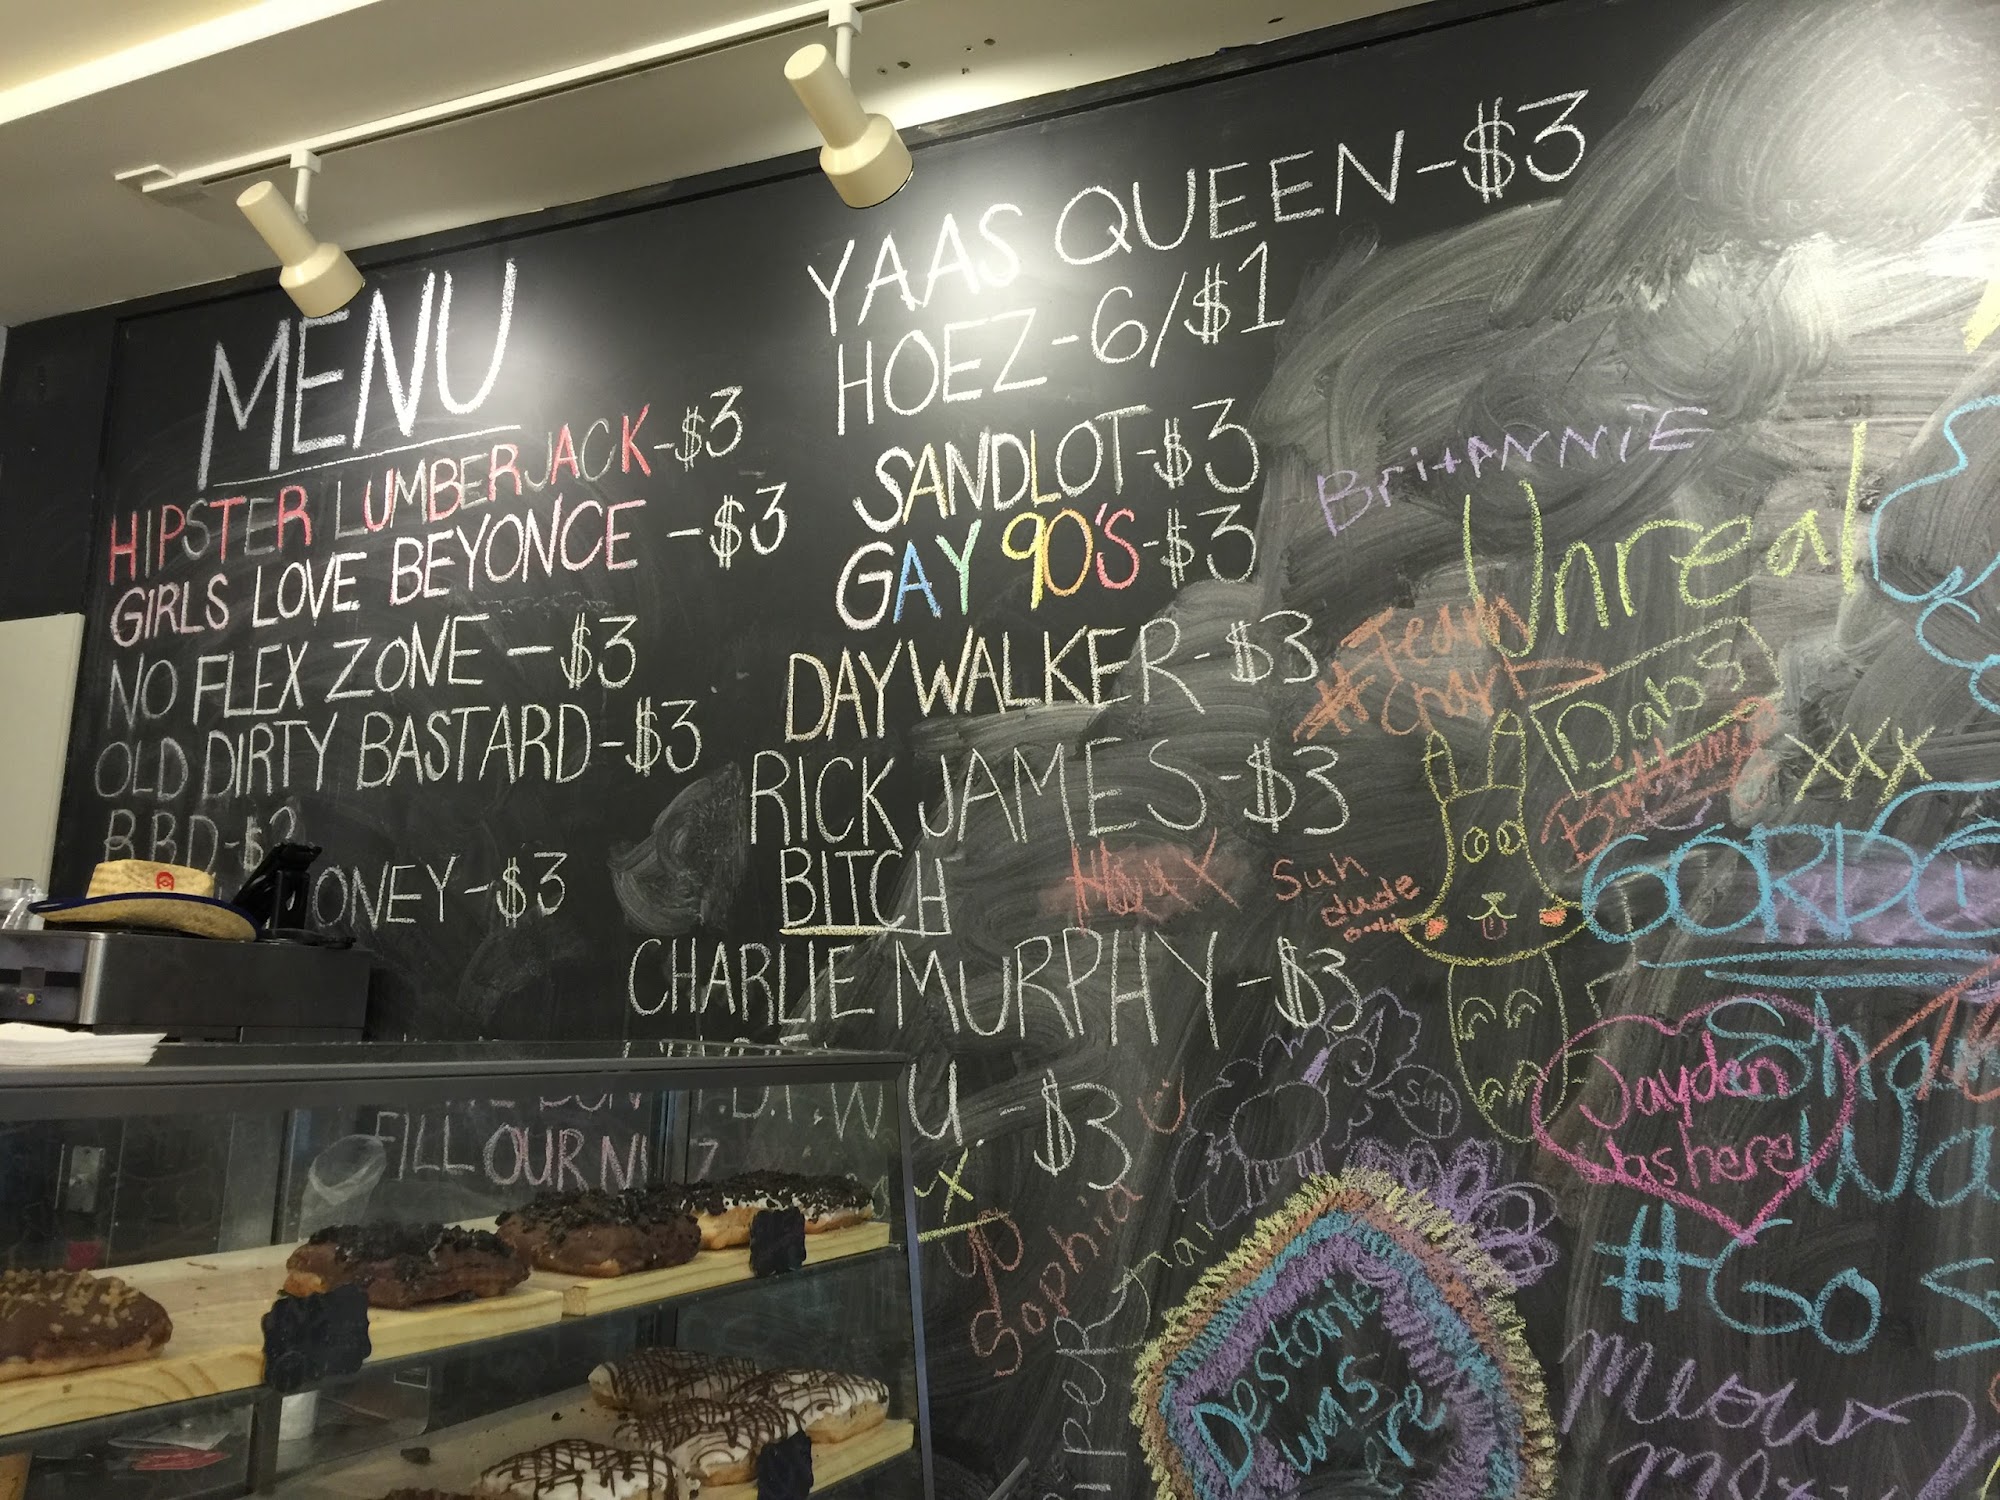 MENU
HIPSTER LUMBERJACK-$3
GIRLS LOVE BEYONCE -$3
NO FLEX ZONE - $3
OLD DIRTY BASTARD-$3
BBD-$3
ONEY-$3
YAAS QUEEN-$3
HOEZ-6/$1
SANDLOT-$3
GAY 90'S-$3
DAYWALKER-$3
RICK JAMES-$3
BITCH
CHARLIE MURPHY-$3
U-$3
FILL OUR
BritANNiE
Unreal
#Team
Dabs
Brittany
xxx
Suh
dude
GORDO
Sup
Jayden
was here
#Go
Sophia
Destanie
was
ere
Meow